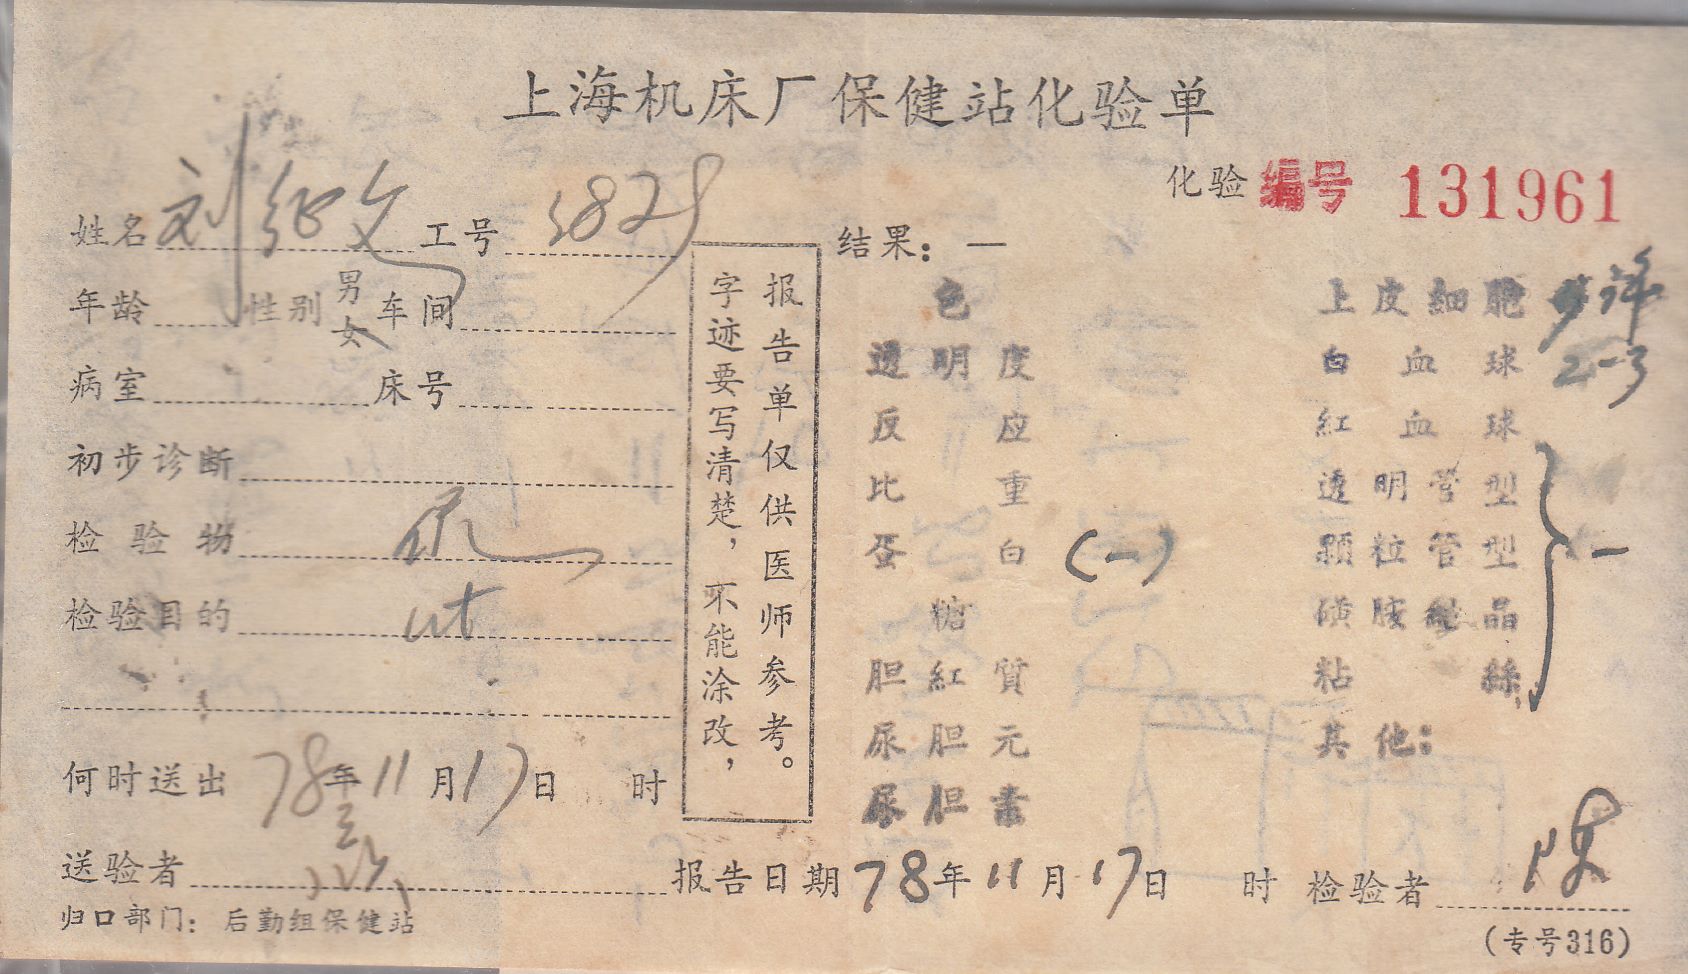 上海机床厂保健站化验单
化验编号 131961
姓名 刘纪文 工号
年龄 性别 男女 车间
病室 床号
初步诊断
检验物 尿
检验目的
何时送出 78年11月17日 时
送验者
归口部门：后勤组保健站
报告单仅供医师参考。
字迹要写清楚，不能涂改，
结果：—
色
透明度
反应
比重
蛋白 (—)
糖
胆紅質
尿胆元
尿胆素
上皮細胞
白血球 2-3
紅血球
透明管型
顆粒管型 —
磺胺結晶
粘絲
其他：
报告日期 78年11月17日 时 检验者
(专号316)